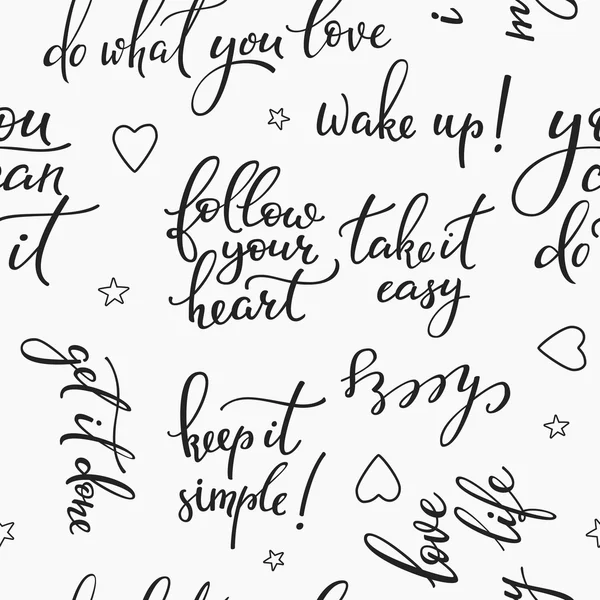 do what you love
wake up!
ou
can
it
follow
your
heart
take it
easy
yo
c
do
get it done
keep it
simple!
love
life